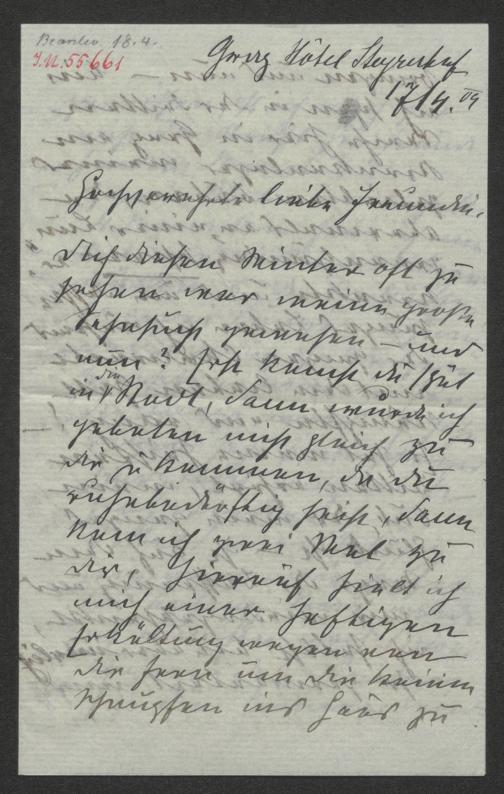 Beantw. 18.4.
I.N. 55661
Graz Hôtel Steyrerhof
17/4. 09
Hochverehrte liebe Freundin,
Dich diesen Winter oft zu
sehen war meine große
Sehnsucht gewesen – und
nun? Erst kamst du spät
in die Stadt, dann wurde ich
gebeten nicht gleich zu
dir zu kommen, da du
ruhebedürftig seist, dann
kam ich zwei Mal zu
dir, hierauf hielt ich
mich einer heftigen
Erkältung wegen von
dir fern um dir keinen
Schnupfen ins Haus zu